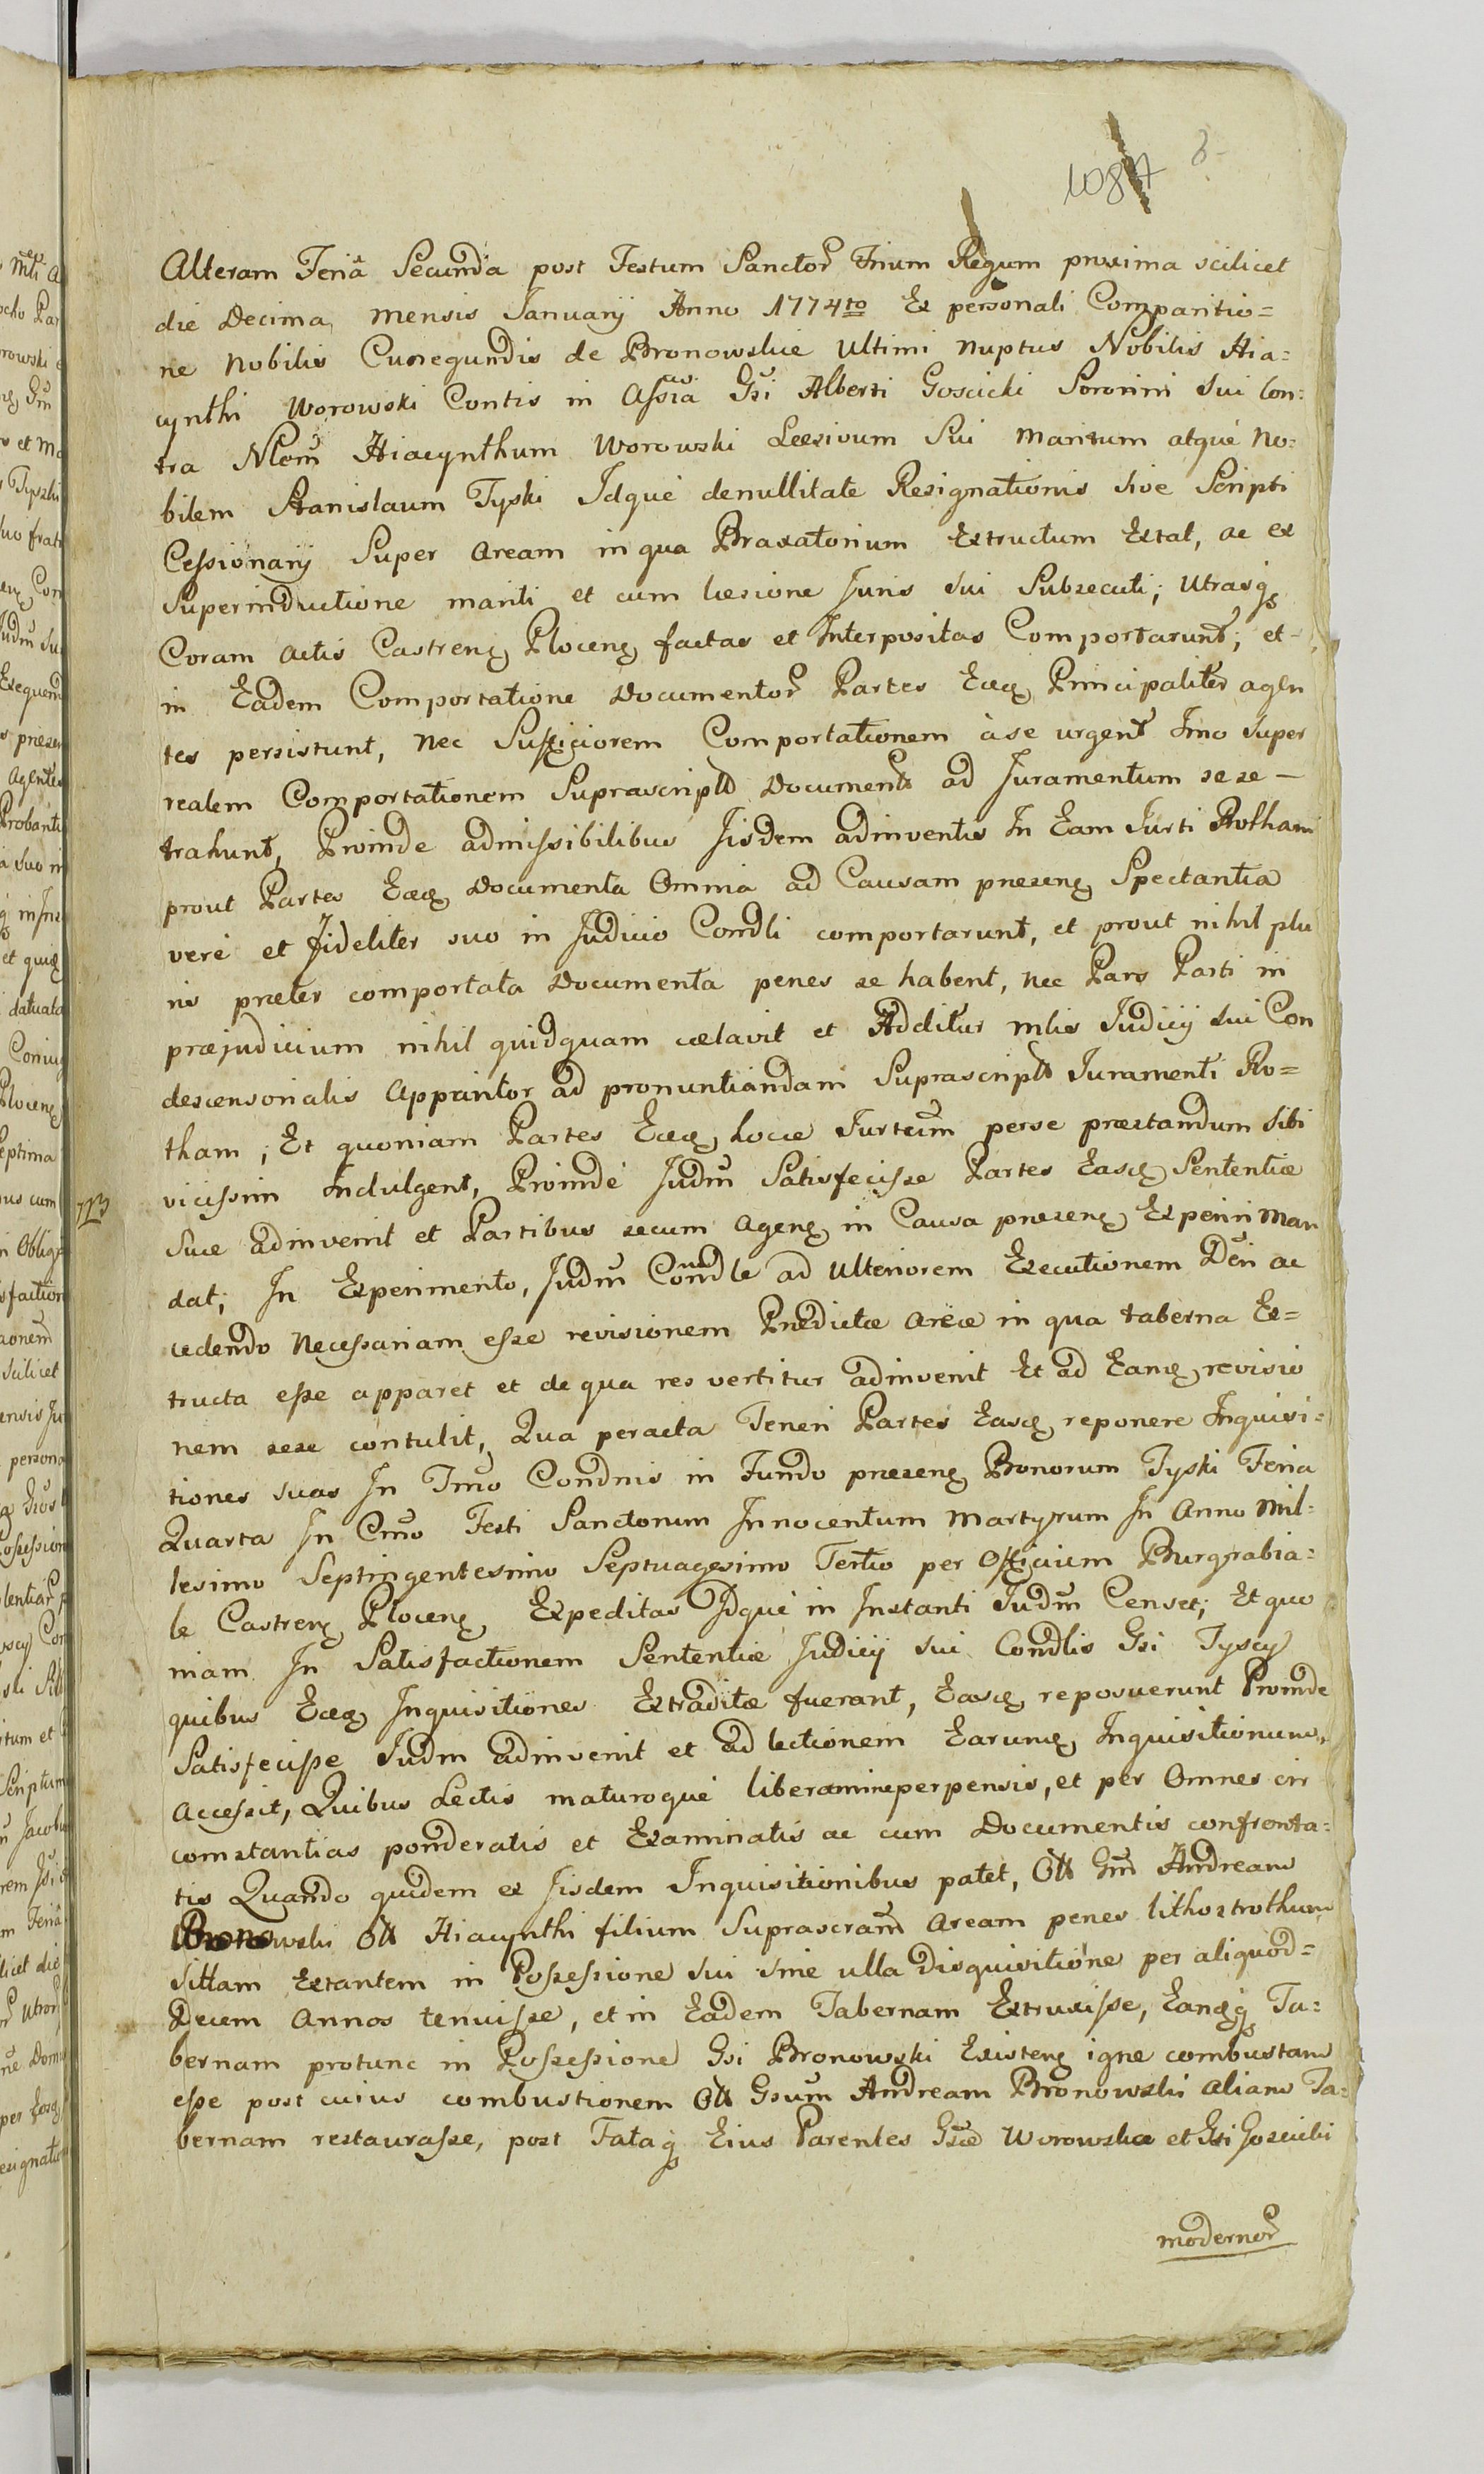 1087
Alteram Feriâ Secunda post Festum Sanctor Trium Regum proxima scilicet
die Decima mensis Januarij Anno 1774to Ex personali Comparitio=
ne Nobilis Cunegundis de Bronowskie Ultimi Nuptus Nobilis Hia=
cynthi Worowski Contis in Assia Gsi Alberti Goscicki Sororini sui Con=
tra Nlem Hiacynthum Worowski Læsivum Sui Maritum atque No=
bilem Stanislaum Tyski Idque denullitate Resignationis sive Scripti
Cessionarij Super Aream in qua Braxatorium Extructum Extat, ac ex
Superinductione mariti et cum læsione Juris Sui Subsecuti; Utrasq
Coram Actis Castren Plocen factas et Interpositas Comportarunt; et
in Eadem Comportatione Documentor Partes Eæq Principaliter agen
tes persistunt, Nec Sufficiorem Comportationem àse urgent Imo Super
realem Comportationem Suprascript Document ad Juramentum sese –
trahunt, Proinde admissibilibus Jisdem adinventis In Eam Jurti Rotham
prout Partes Eæq Documenta Omnia ad Causam præsen Spectantia
veré et Fideliter suo in Judicio Condli comportarunt, et prout nihil plu
ris præter comportata Documenta penes se habent, nec Pars Parti in
præjudicium nihil quidquam cælavit et Additur mlis Judicij sui Con
descensorialis Apparitor ad pronuntiandam Suprascript Juramenti Ro=
tham; Et quoniam Partes Eæq hocce Jurteum perse præstandum Sibi
vicissim Indulgent, Proinde Judm Satisfecisse Partes Easq Sententiæ
Suæ adinvenit et Partibus secum Agen in Causa præsen Experiri Man
dat; In Experimento, Judm Condle ad Ulteriorem Executionem Dëri ac
cedendo Necessariam esse revisionem Prædictæ Areæ in qua taberna Ex=
tructa esse apparet et de qua res vertitur adinvenit Et ad Eanq revisio
nem sese contulit, Qua peracta Teneri Partes Easq reponere Inquisi=
tiones suas In Tmo Condnis in Fundo præsen Bonorum Tyski Feria
Quarta In Cmo Festi Sanctorum Innocentum Martyrum In Anno Mil=
lesimo Septingentesimo Septuagesimo Tertio per Officium Burgrabia=
le Castren Plocen Expeditas Idque in Instanti Judm Censet; Et quo
niam In Satisfactionem Sententiæ Judicij sui Condlis Gsi Tyscy
quibus Eæq Inquisitiones Extraditæ fuerant, Easq reposuerunt Proinde
Satisfecisse Judm adinvenit et ad lectionem Earunq Inquisitionum
Accessit, Quibus Lectis maturoque liberamineperpensis, et per Omnes cir
comstantias ponderatis et Examinatis ac cum Documentis confronta=
tis Quando quidem ex Jisdem Inquisitionibus patet, Olt Gm Andream
Bronowski Olt Hiacynthi filium Suprascram Aream penes lithostrothum
Sittam Extantem in Possessione sui sine ulla Disquisitione per aliquod=
Decem Annos tenuisse, et in Eadem Tabernam Extruxisse, Eanqq Ta=
bernam protunc in Possessione Gsi Bronowski Existen igne combustam
esse post cuius combustionem Olt Gsum Andream Bronowski aliam Ta=
bernam restaurasse, post Fataq Eius Parentes Gsæ Worowska et Gsi Goscicki
modernor